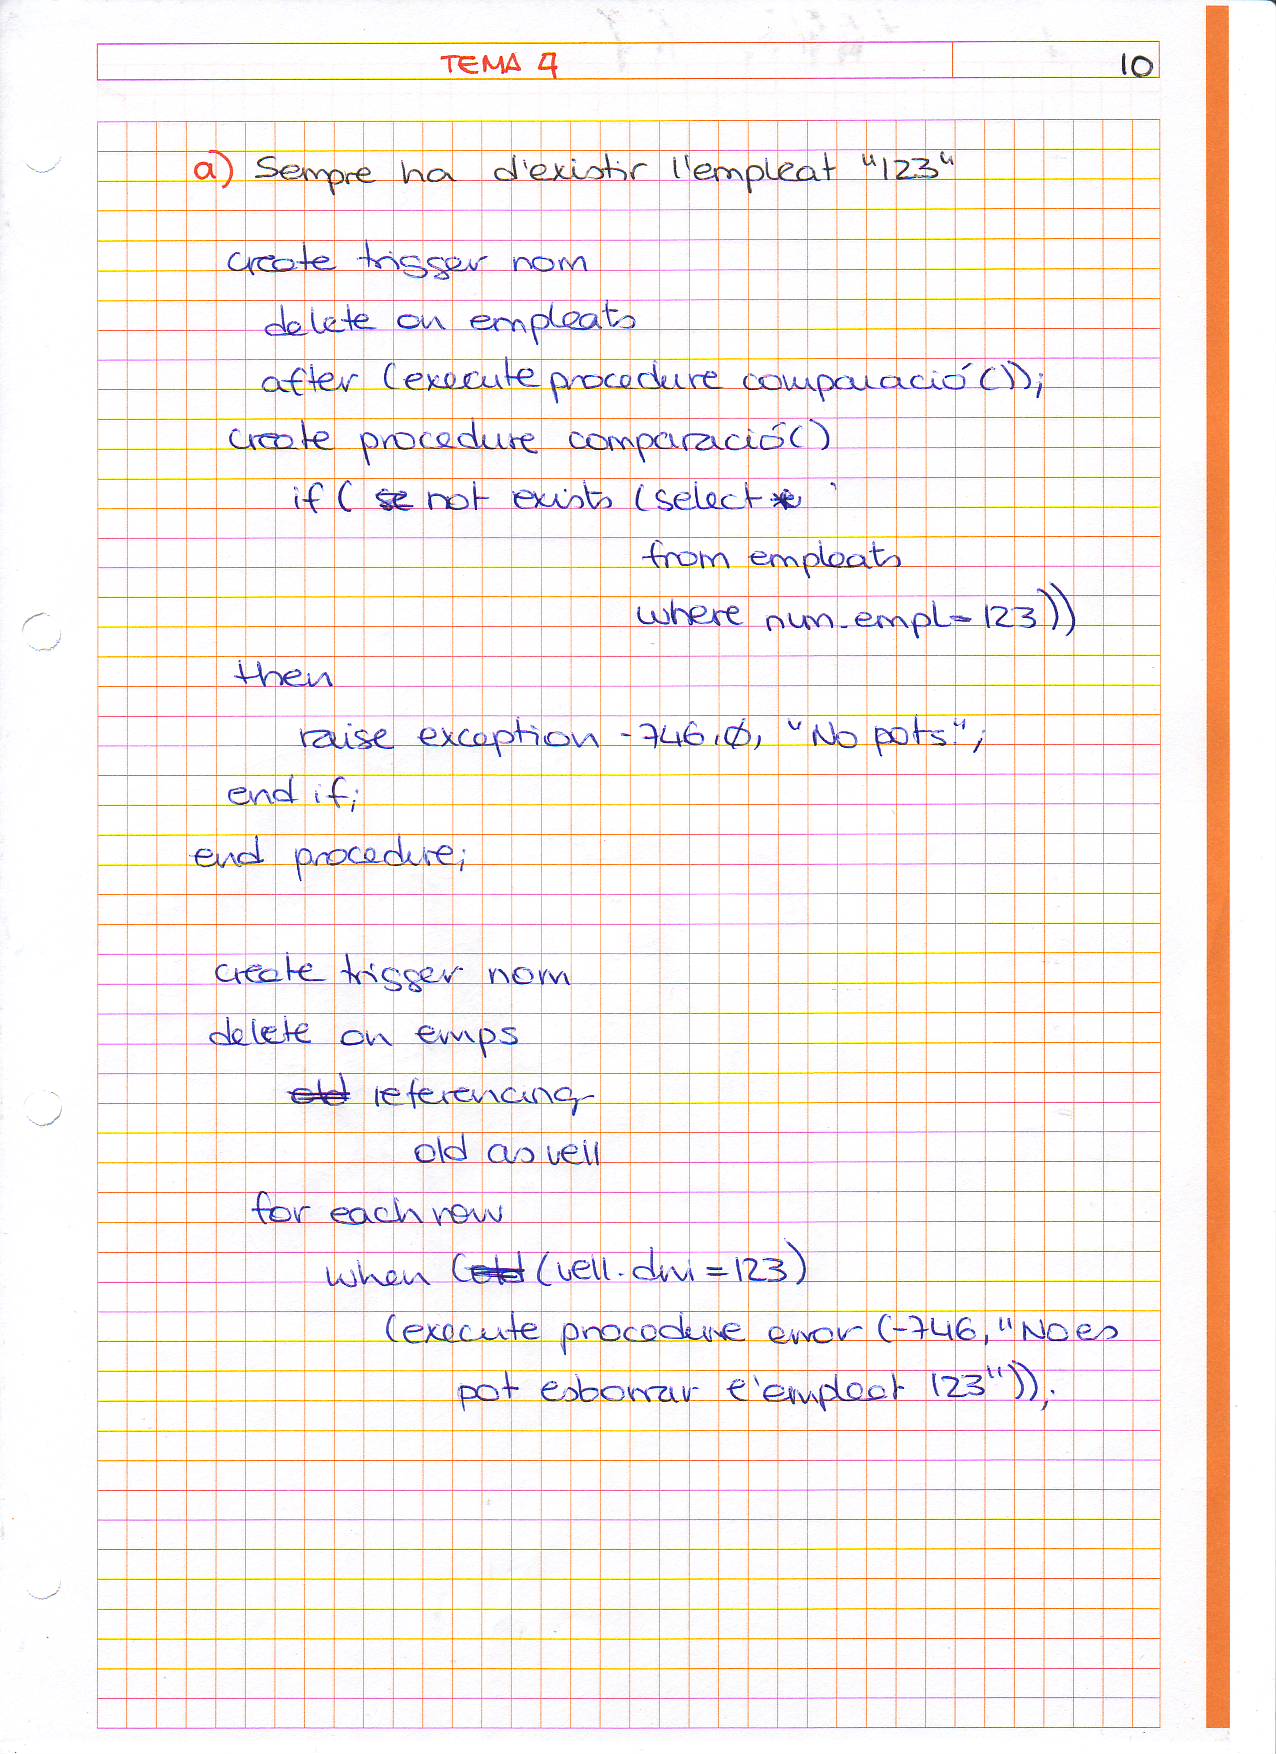 TEMA 4
10
a) Sempre ha d'existir l'empleat "123"
create trigger nom
delete on empleats
after (execute procedure comparació());
create procedure comparació()
if ( not exists (select *
from empleats
where num_empl = 123))
then
raise exception -746,0, "No pots.";
end if;
end procedure;
create trigger nom
delete on emps
referencing
old as vell
for each row
when ( (vell.dni = 123)
(execute procedure error (-746, "No es
pot esborrar l'empleat 123"));